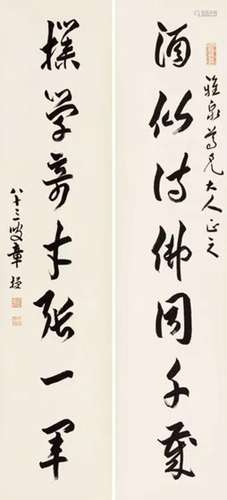 雅泉尊兄大人正之
酒仙诗佛同千歲
樸学奇才張一軍
八十三叟章梫